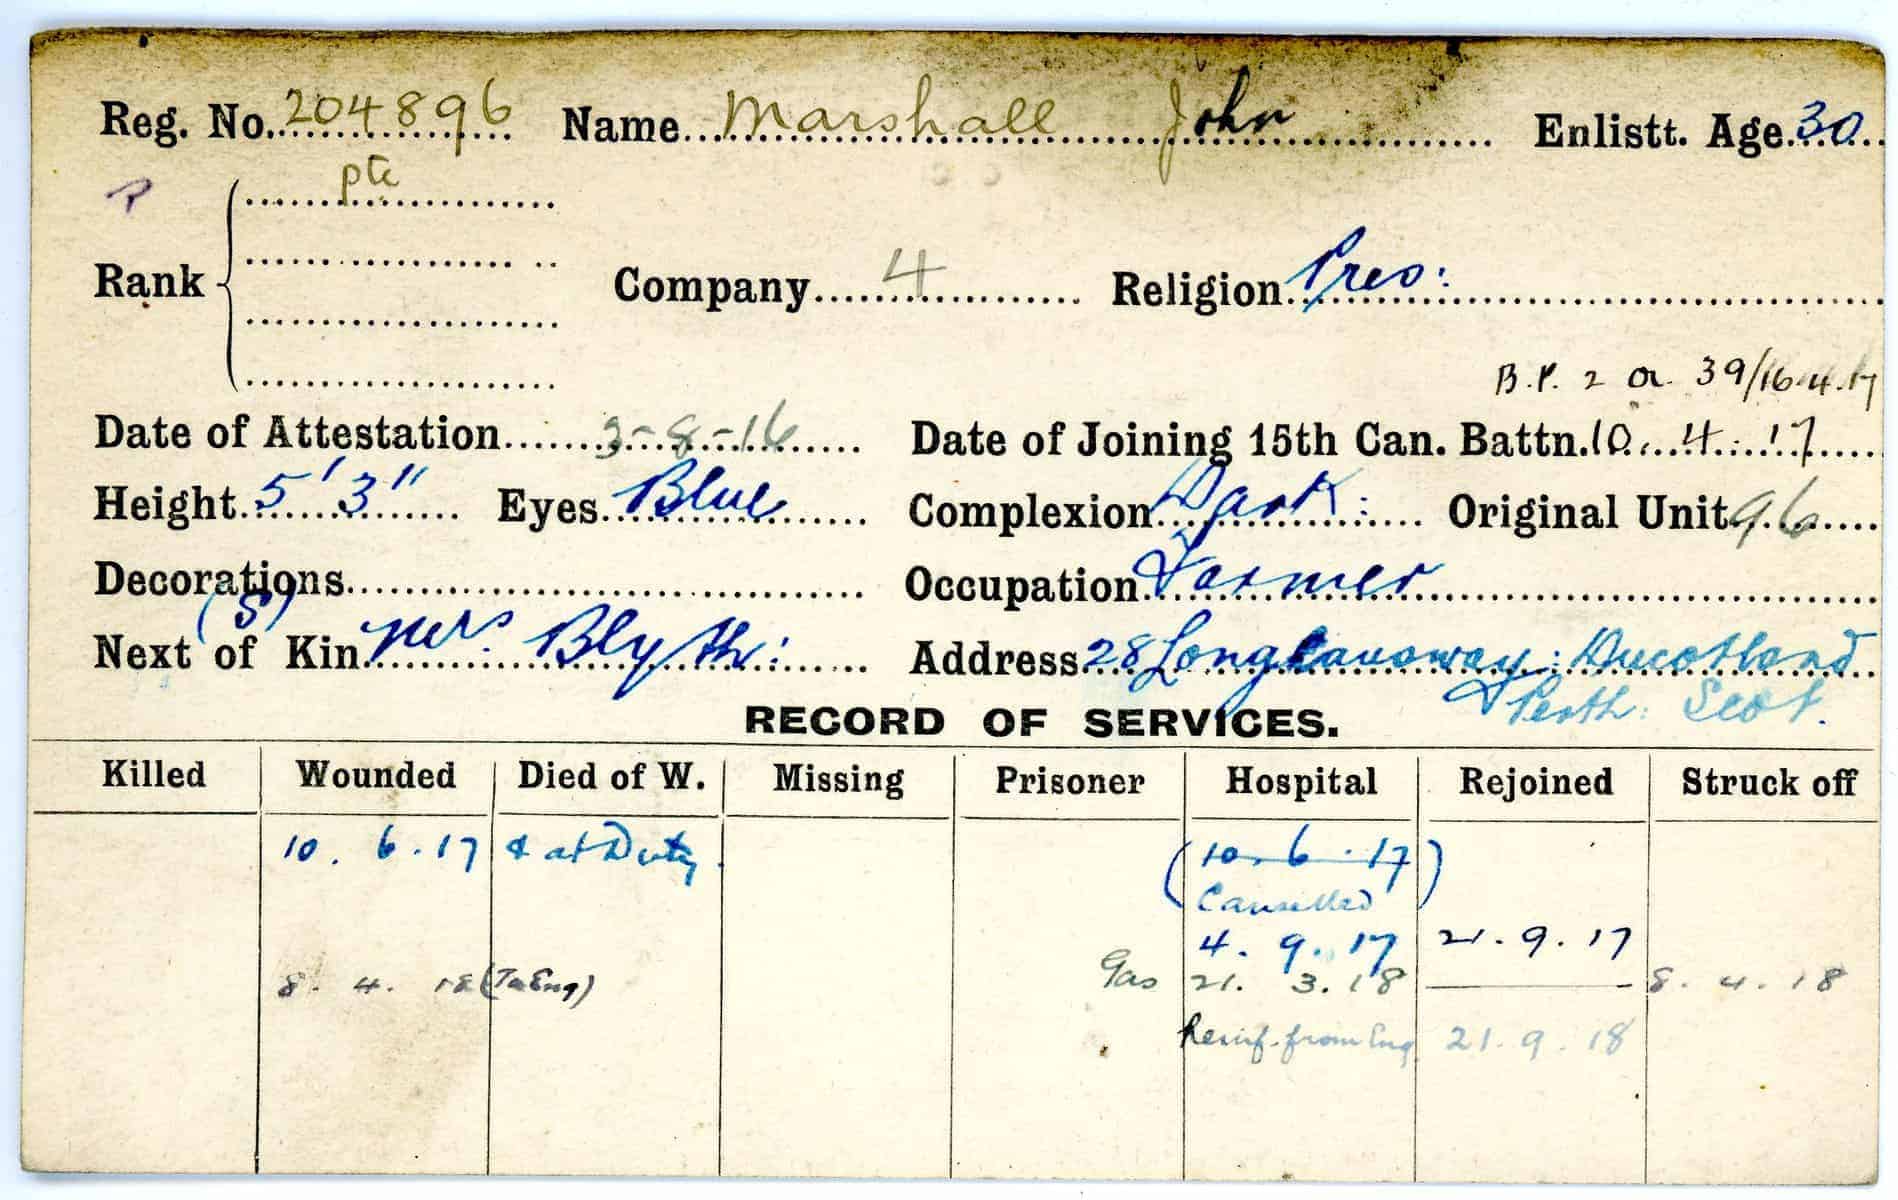 Reg. No. 204896 Name Marshall John Enlistt. Age 30
pte
Rank Company 4 Religion Pres:
B.P. 2 or 39/16.4.17
Date of Attestation 3-8-16 Date of Joining 15th Can. Battn. 10.4.17
Height 5' 3" Eyes Blue Complexion Dark: Original Unit 96
Decorations Occupation Farmer
(S)
Next of Kin Mrs. Blyth: Address 28 Longcauseway:
Perth: Scot.
RECORD OF SERVICES.
Killed Wounded Died of W. Missing Prisoner Hospital Rejoined Struck off
10.6.17 & at Duty. (10.6.17)
Cancelled
4.9.17 21.9.17
8.4.18 (To Eng) Gas 21.3.18 8.4.18
Reinf. from Eng. 21.9.18